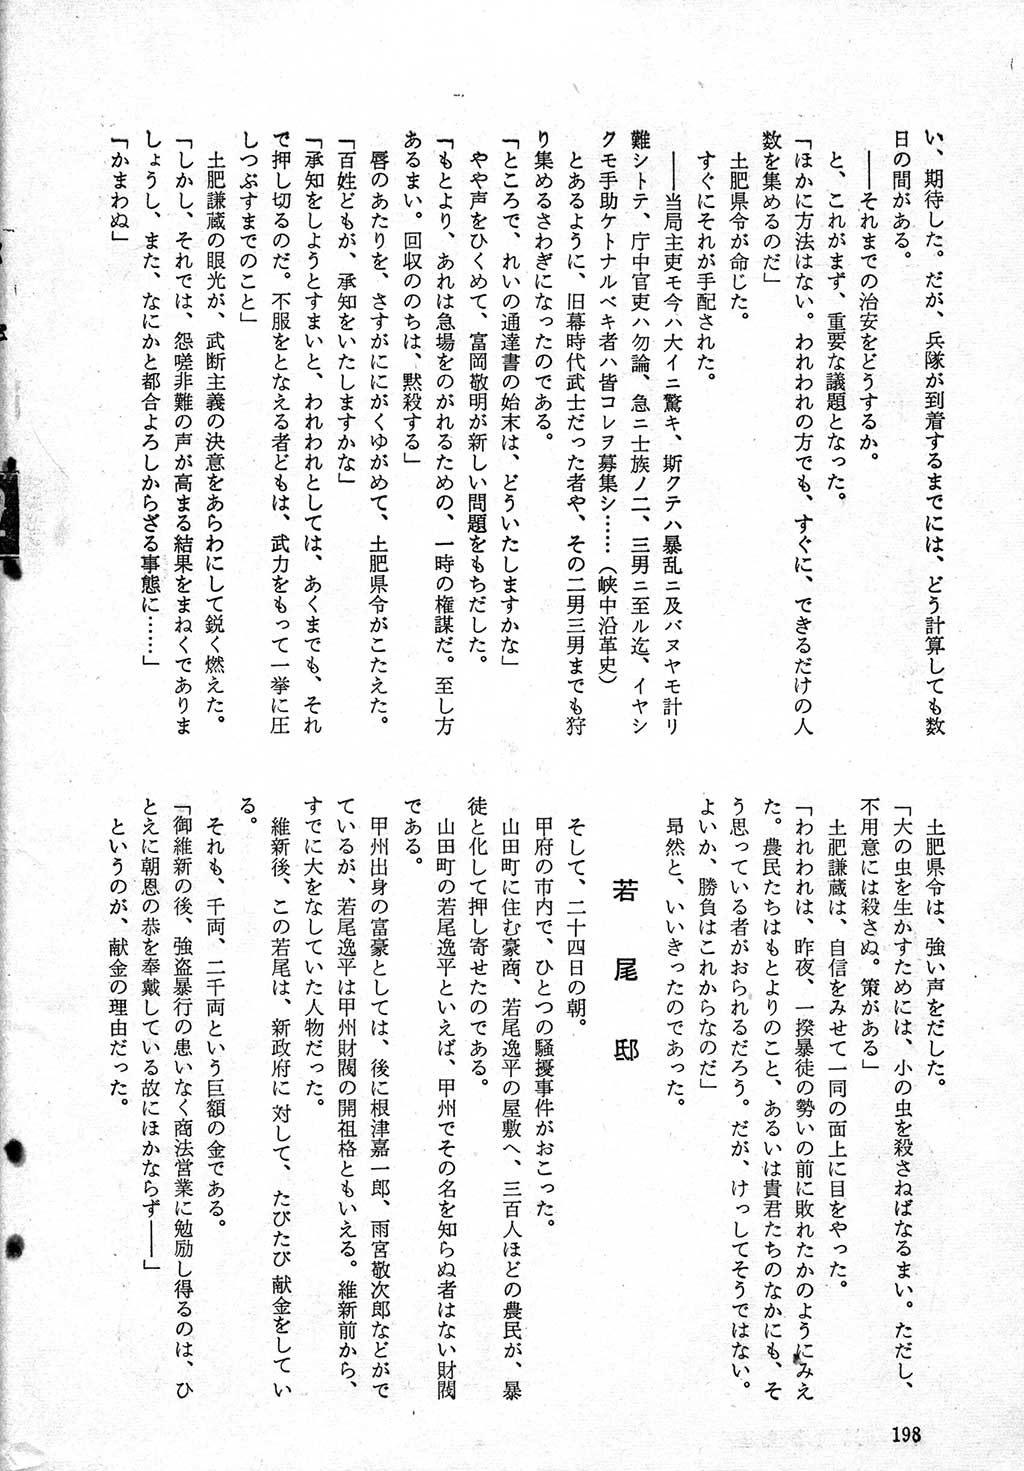 い、期待した。だが、兵隊が到着するまでには、どう計算しても数
日の間がある。
――それまでの治安をどうするか。
と、これがまず、重要な議題となった。
「ほかに方法はない。われわれの方でも、すぐに、できるだけの人
数を集めるのだ」
土肥県令が命じた。
すぐにそれが手配された。
――当局主吏モ今ハ大イニ驚キ、斯クテハ暴乱ニ及バヌヤモ計リ
難シトテ、庁中官吏ハ勿論、急ニ士族ノ二、三男ニ至ル迄、イヤシ
クモ手助ケトナルベキ者ハ皆コレヲ募集シ……（峡中沿革史）
とあるように、旧幕時代武士だった者や、その二男三男までも狩
り集めるさわぎになったのである。
「ところで、れいの通達書の始末は、どういたしますかな」
やや声をひくめて、富岡敬明が新しい問題をもちだした。
「もとより、あれは急場をのがれるための、一時の権謀だ。至し方
あるまい。回収ののちは、黙殺する」
唇のあたりを、さすがににがくゆがめて、土肥県令がこたえた。
「百姓どもが、承知をいたしますかな」
「承知をしようとすまいと、われわれとしては、あくまでも、それ
で押し切るのだ。不服をとなえる者どもは、武力をもって一挙に圧
しつぶすまでのこと」
土肥謙蔵の眼光が、武断主義の決意をあらわにして鋭く燃えた。
「しかし、それでは、怨嗟非難の声が高まる結果をまねくでありま
しょうし、また、なにかと都合よろしからざる事態に……」
「かまわぬ」
土肥県令は、強い声をだした。
「大の虫を生かすためには、小の虫を殺さねばなるまい。ただし、
不用意には殺さぬ。策がある」
土肥謙蔵は、自信をみせて一同の面上に目をやった。
「われわれは、昨夜、一揆暴徒の勢いの前に敗れたかのようにみえ
た。農民たちはもとよりのこと、あるいは貴君たちのなかにも、そ
う思っている者がおられるだろう。だが、けっしてそうではない。
よいか、勝負はこれからなのだ」
昂然と、いいきったのであった。
若尾邸
そして、二十四日の朝。
甲府の市内で、ひとつの騒擾事件がおこった。
山田町に住む豪商、若尾逸平の屋敷へ、三百人ほどの農民が、暴
徒と化して押し寄せたのである。
山田町の若尾逸平といえば、甲州でその名を知らぬ者はない財閥
である。
甲州出身の富豪としては、後に根津嘉一郎、雨宮敬次郎などがで
ているが、若尾逸平は甲州財閥の開祖格ともいえる。維新前から、
すでに大をなしていた人物だった。
維新後、この若尾は、新政府に対して、たびたび献金をしてい
る。
それも、千両、二千両という巨額の金である。
「御維新の後、強盗暴行の患いなく商法営業に勉励し得るのは、ひ
とえに朝恩の恭を奉戴している故にほかならず――」
というのが、献金の理由だった。
198